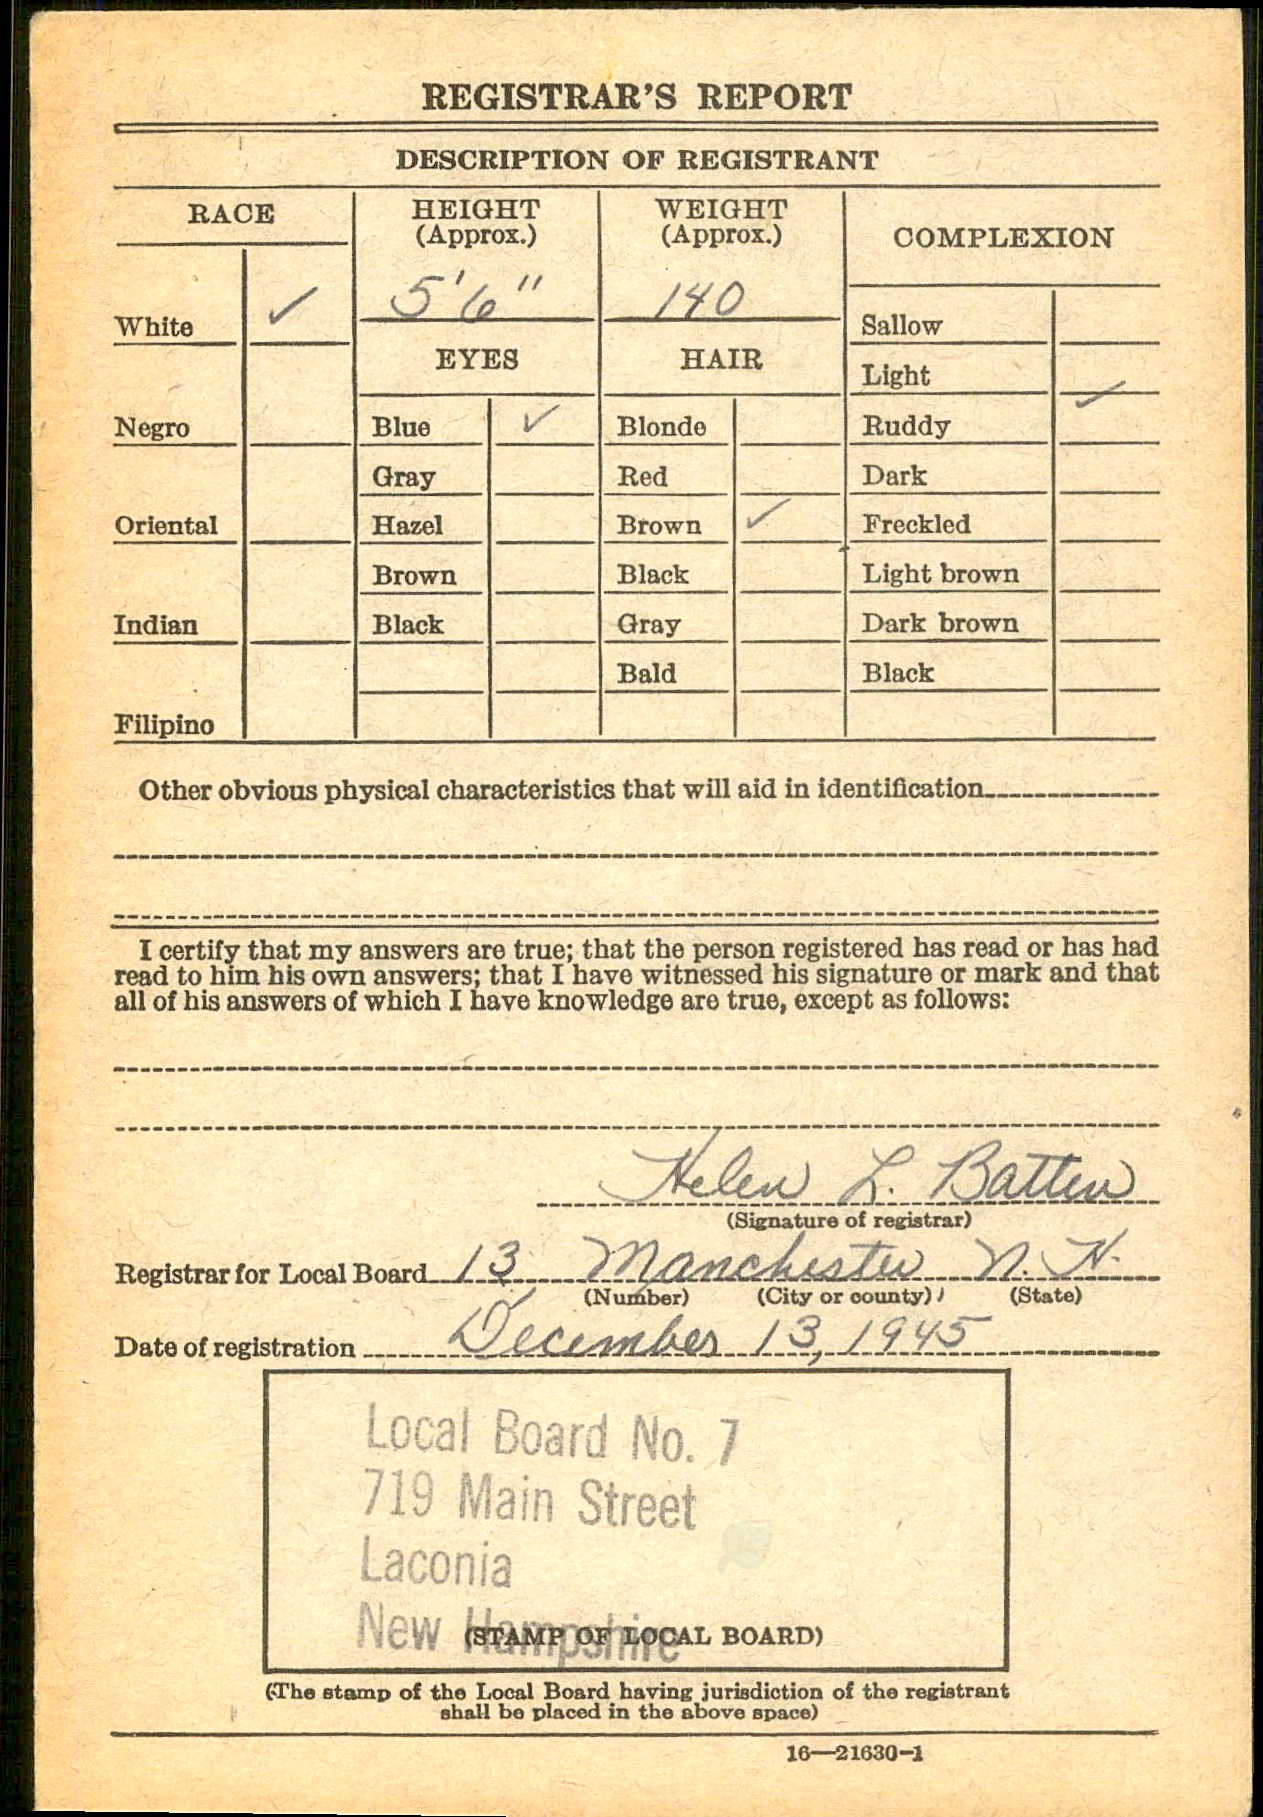 REGISTRAR'S REPORT
DESCRIPTION OF REGISTRANT
RACE
White ✓
Negro
Oriental
Indian
Filipino
HEIGHT
(Approx.)
5'6"
WEIGHT
(Approx.)
140
EYES
Blue ✓
Gray
Hazel
Brown
Black
HAIR
Blonde
Red
Brown ✓
Black
Gray
Bald
COMPLEXION
Sallow
Light
Ruddy ✓
Dark
Freckled
Light brown
Dark brown
Black
Other obvious physical characteristics that will aid in identification
I certify that my answers are true; that the person registered has read or has had
read to him his own answers; that I have witnessed his signature or mark and that
all of his answers of which I have knowledge are true, except as follows:
Helen L. Batten
(Signature of registrar)
Registrar for Local Board 13 Manchester N. H.
(Number) (City or county) (State)
Date of registration December 13, 1945
Local Board No. 7
719 Main Street
Laconia
New Hampshire
(STAMP OF LOCAL BOARD)
(The stamp of the Local Board having jurisdiction of the registrant
shall be placed in the above space)
16—21630-1